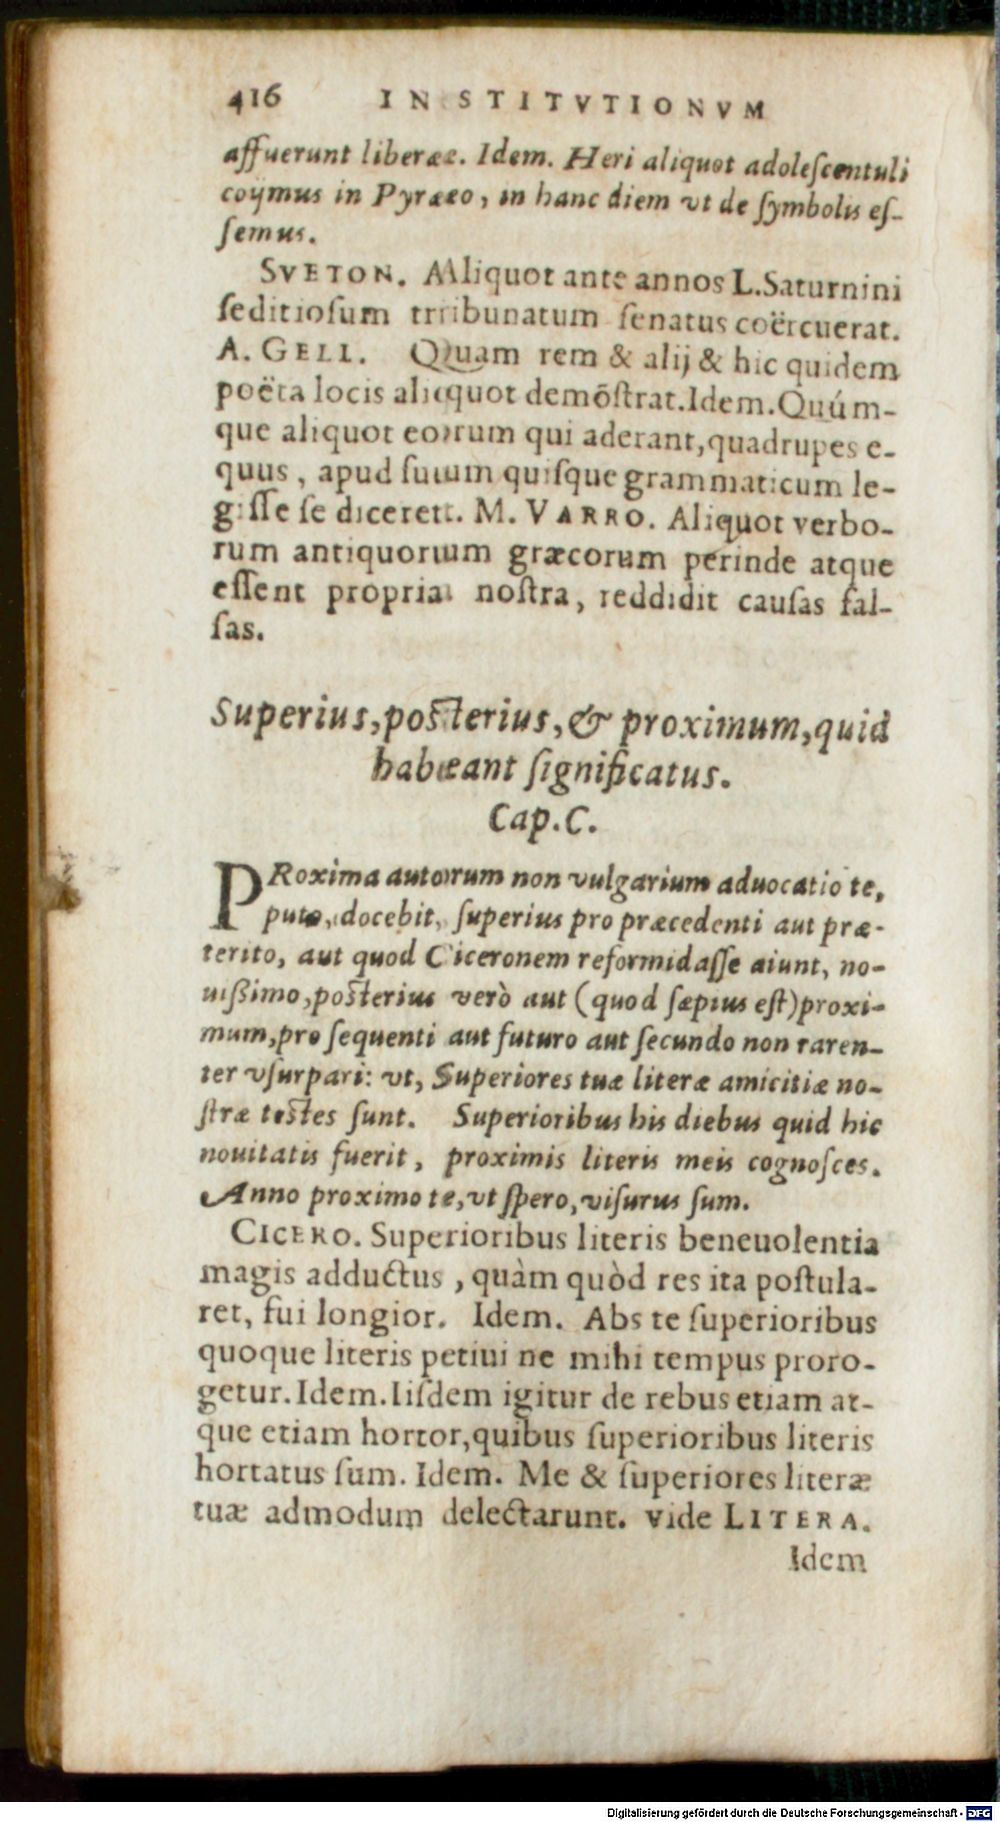 416 INSTITVTIONVM
affuerunt liberæ. Idem. Heri aliquot adoleſcentuli
coijmus in Pyræeo, in hanc diem vt de ſymbolis eſ-
ſemus.
SVETON. Aliquot ante annos L.Saturnini
ſeditioſum tribunatum ſenatus coërcuerat.
A. GELL. Quam rem & alij & hic quidem
poëta locis aliquot demōſtrat.Idem.Quúm-
que aliquot eorum qui aderant,quadrupes e-
quus, apud ſuum quiſque grammaticum le-
giſſe ſe diceret. M. VARRO. Aliquot verbo-
rum antiquorum græcorum perinde atque
eſſent propria noſtra, reddidit cauſas fal-
ſas.
Superius,poſterius,& proximum,quid
habeant ſignificatus.
Cap.C.
PRoxima autorum non vulgarium aduocatio te,
puto, docebit, ſuperius pro præcedenti aut præ-
terito, aut quod Ciceronem reformidaſſe aiunt, no-
uißimo,poſterius verò aut (quod ſæpius eſt)proxi-
mum,pro ſequenti aut futuro aut ſecundo non raren-
ter vſurpari: vt, Superiores tuæ literæ amicitiæ no-
ſtræ teſtes ſunt. Superioribus his diebus quid hic
nouitatis fuerit, proximis literis meis cognoſces.
Anno proximo te,vt ſpero,viſurus ſum.
CICERO. Superioribus literis beneuolentia
magis adductus, quàm quòd res ita poſtula-
ret, fui longior. Idem. Abs te ſuperioribus
quoque literis petiui ne mihi tempus proro-
getur.Idem.Iiſdem igitur de rebus etiam at-
que etiam hortor,quibus ſuperioribus literis
hortatus ſum. Idem. Me & ſuperiores literæ
tuæ admodum delectarunt. vide LITERA.
Idem
Digitalisierung gefördert durch die Deutsche Forschungsgemeinschaft - DFG